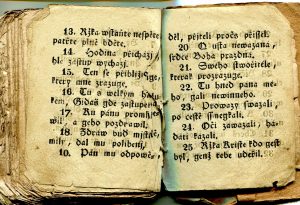 13. Ržka wstaňte nespěte
patřte pilně bděte.
14. Hodina přichází,
hle zástup wychází.
15. Ten se přibližuge,
který mne zrazuge.
16. Tu s welkým
kem, Gidáš gde zástupem.
17. Ku pánu promlu-
wil, a geho pozdrawil.
18. Zdráw buď mistře
milý, dal mu políbení.
19. Pán mu odpowě-
děl, příteli proč's přišel.
20. O usta newázaná,
srdce Boha prázdná.
21. Swého stwořitele,
kterak prozrazuge.
22. Tu hned pána mé-
ho, gali newinného.
23. Prowazy swázali,
po cestě smegkali.
24. Oči zawázali, há-
dati kázali.
25. Ržka Kriste kdo gest
byl, genž tebe udeřil.